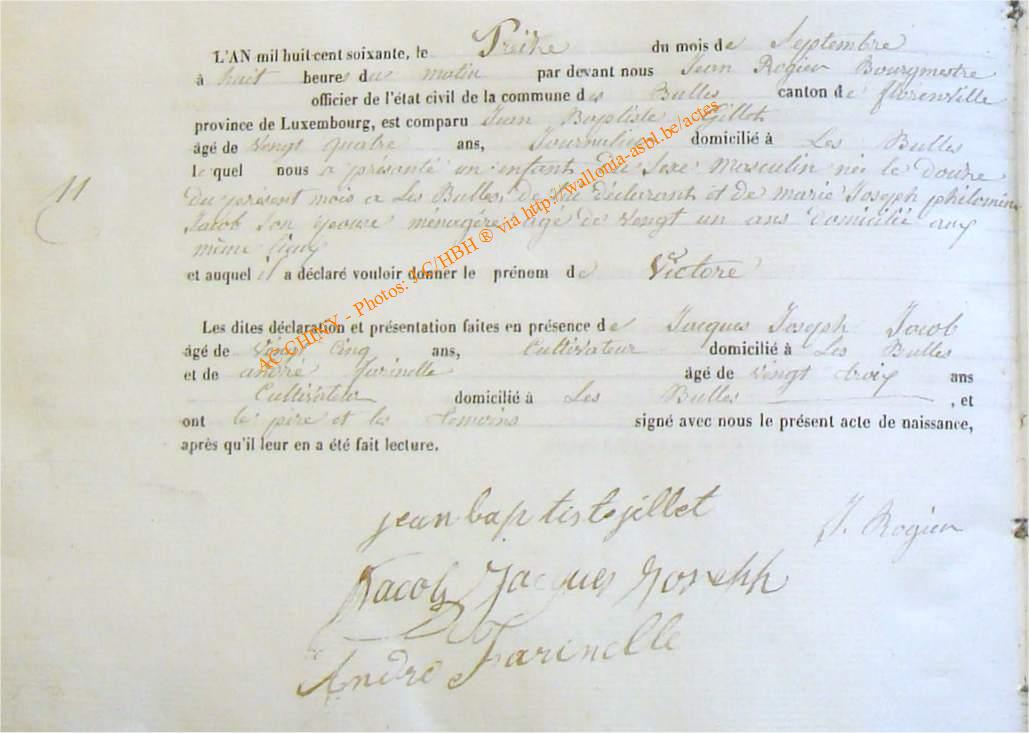 L'AN mil huit cent soixante, le Treize du mois de Septembre
à huit heures du matin par devant nous Jean Rogier Bourgmestre
officier de l'état civil de la commune des Bulles canton de florenville
province de Luxembourg, est comparu Jean Baptiste Gillet
âgé de vingt quatre ans, Journalier domicilié à Les Bulles
lequel nous a présenté un enfant de Sexe Masculin née le douze
11
du présent mois a Les Bulles, de lui déclarant et de marie Joseph philomine
Jacob Son épouse ménagère âgé de vingt un ans domicilié aux
même lieux
et auquel il a déclaré vouloir donner le prénom de Victore
Les dites déclaration et présentation faites en présence de Jacques Joseph Jacob
âgé de Cinq ans, Cultivateur domicilié à Les Bulles
et de andré farinelle âgé de vingt troix ans
Cultivateur domicilié à Les Bulles , et
ont le père et les temoins signé avec nous le présent acte de naissance,
après qu'il leur en a été fait lecture.
jean baptiste jillet
J. Rogier
Jacob Jacques Joseph
André Farinelle
ACCHENY - Photos: AC/HBH ® via http://wallonia-asbl.be/actes